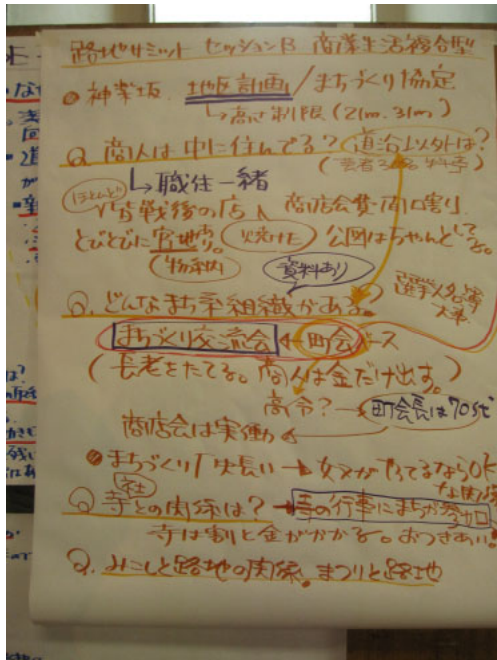 路地サミット セッションB 商業生活複合型
● 神楽坂、地区計画/まちづくり協定
↳高さ制限(21m、31m)
Q 商人は中に住んでる? 道沿以外は?
(芸者 料亭)
↳職住一緒
ほとんど
皆戦後の店 商店会費・間口割り
とびとびに 焼けた 公図はちゃんとしてる。
資料あり
Q. どんなまち系組織がある。
選挙人名簿
大事
まちづくり交流会 ← 町会 ベース
(長老をたてる。商人は金だけ出す。)
高令?→町会長は70st
商店会は実働
● まちづくり 長い → がやってるならOK
な関係
Q 寺社との関係は? → 寺の行事にまちが参加
寺は割と金がかかる。おつきあい。
Q. みこしと路地の関係。まつりと路地